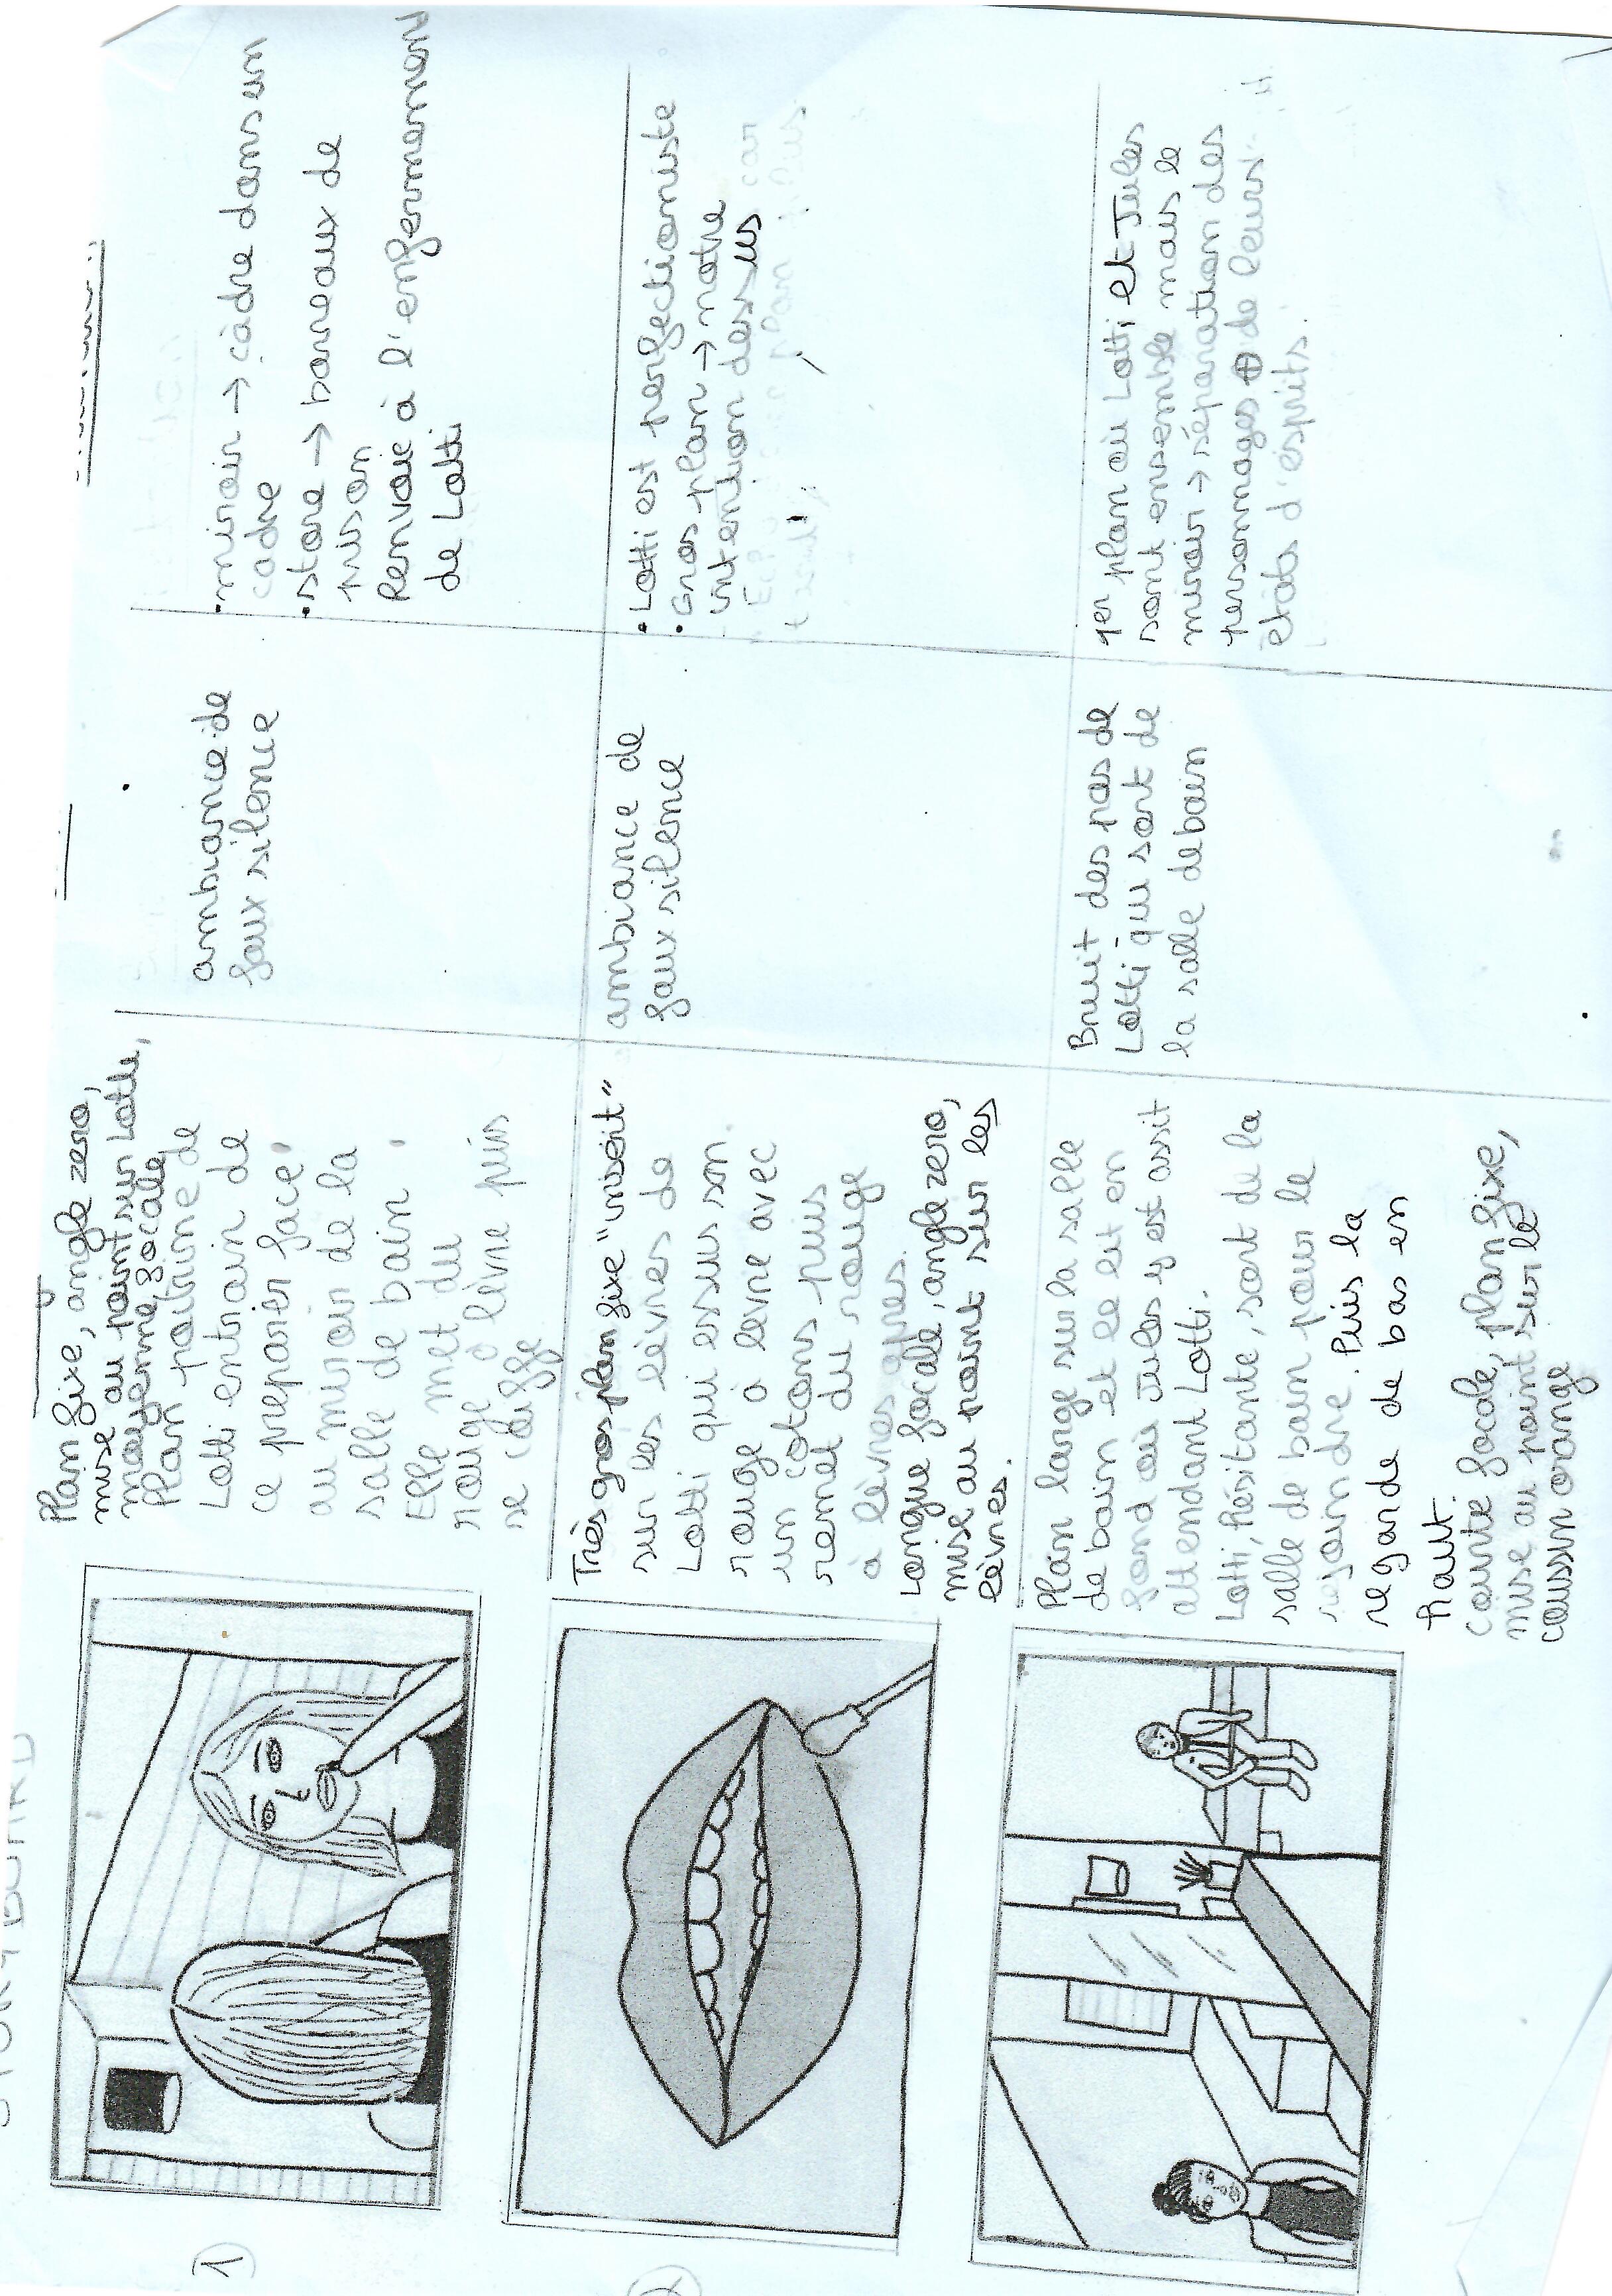 STORYBOARD
1
Plan fixe, angle zero,
mise au point sur Lotti,
moyenne focale
Plan poitrine de
Lotti entrain de
ce preparer face
au miroir de la
salle de bain.
Elle met du
rouge à lèvre puis
se coiffe
ambiance de
faux silence
•miroir → càdre dans un
cadre
•store → barreaux de
prison
Renvoie à l'enfermement
de Lotti
2
Très gros plan fixe "insert"
sur les lèvres de
Lotti qui essus son
rouge à levre avec
un cotons puis
remet du rouge
à lèvres apres.
Longue focale, angle zero,
mise au point sur les
lèvres.
ambiance de
faux silence
• Lotti est perfectioniste
• Gros plan → notre
intention dessus
Plan large sur la salle
de bain et le lit en
fond où Jules y est assit
attendant Lotti.
Lotti, hésitante, sort de la
salle de bain pour le
rejoindre. Puis la
regarde de bas en
haut.
courte focale, plan fixe,
mise au point sur le
coussin orange
Bruit des pas de
Lotti qui sort de
la salle de bain
1er plan où Lotti et Jules
sont ensemble mais le
miroir → séparation des
personnages ⊕ de leurs
etats d'esprits.